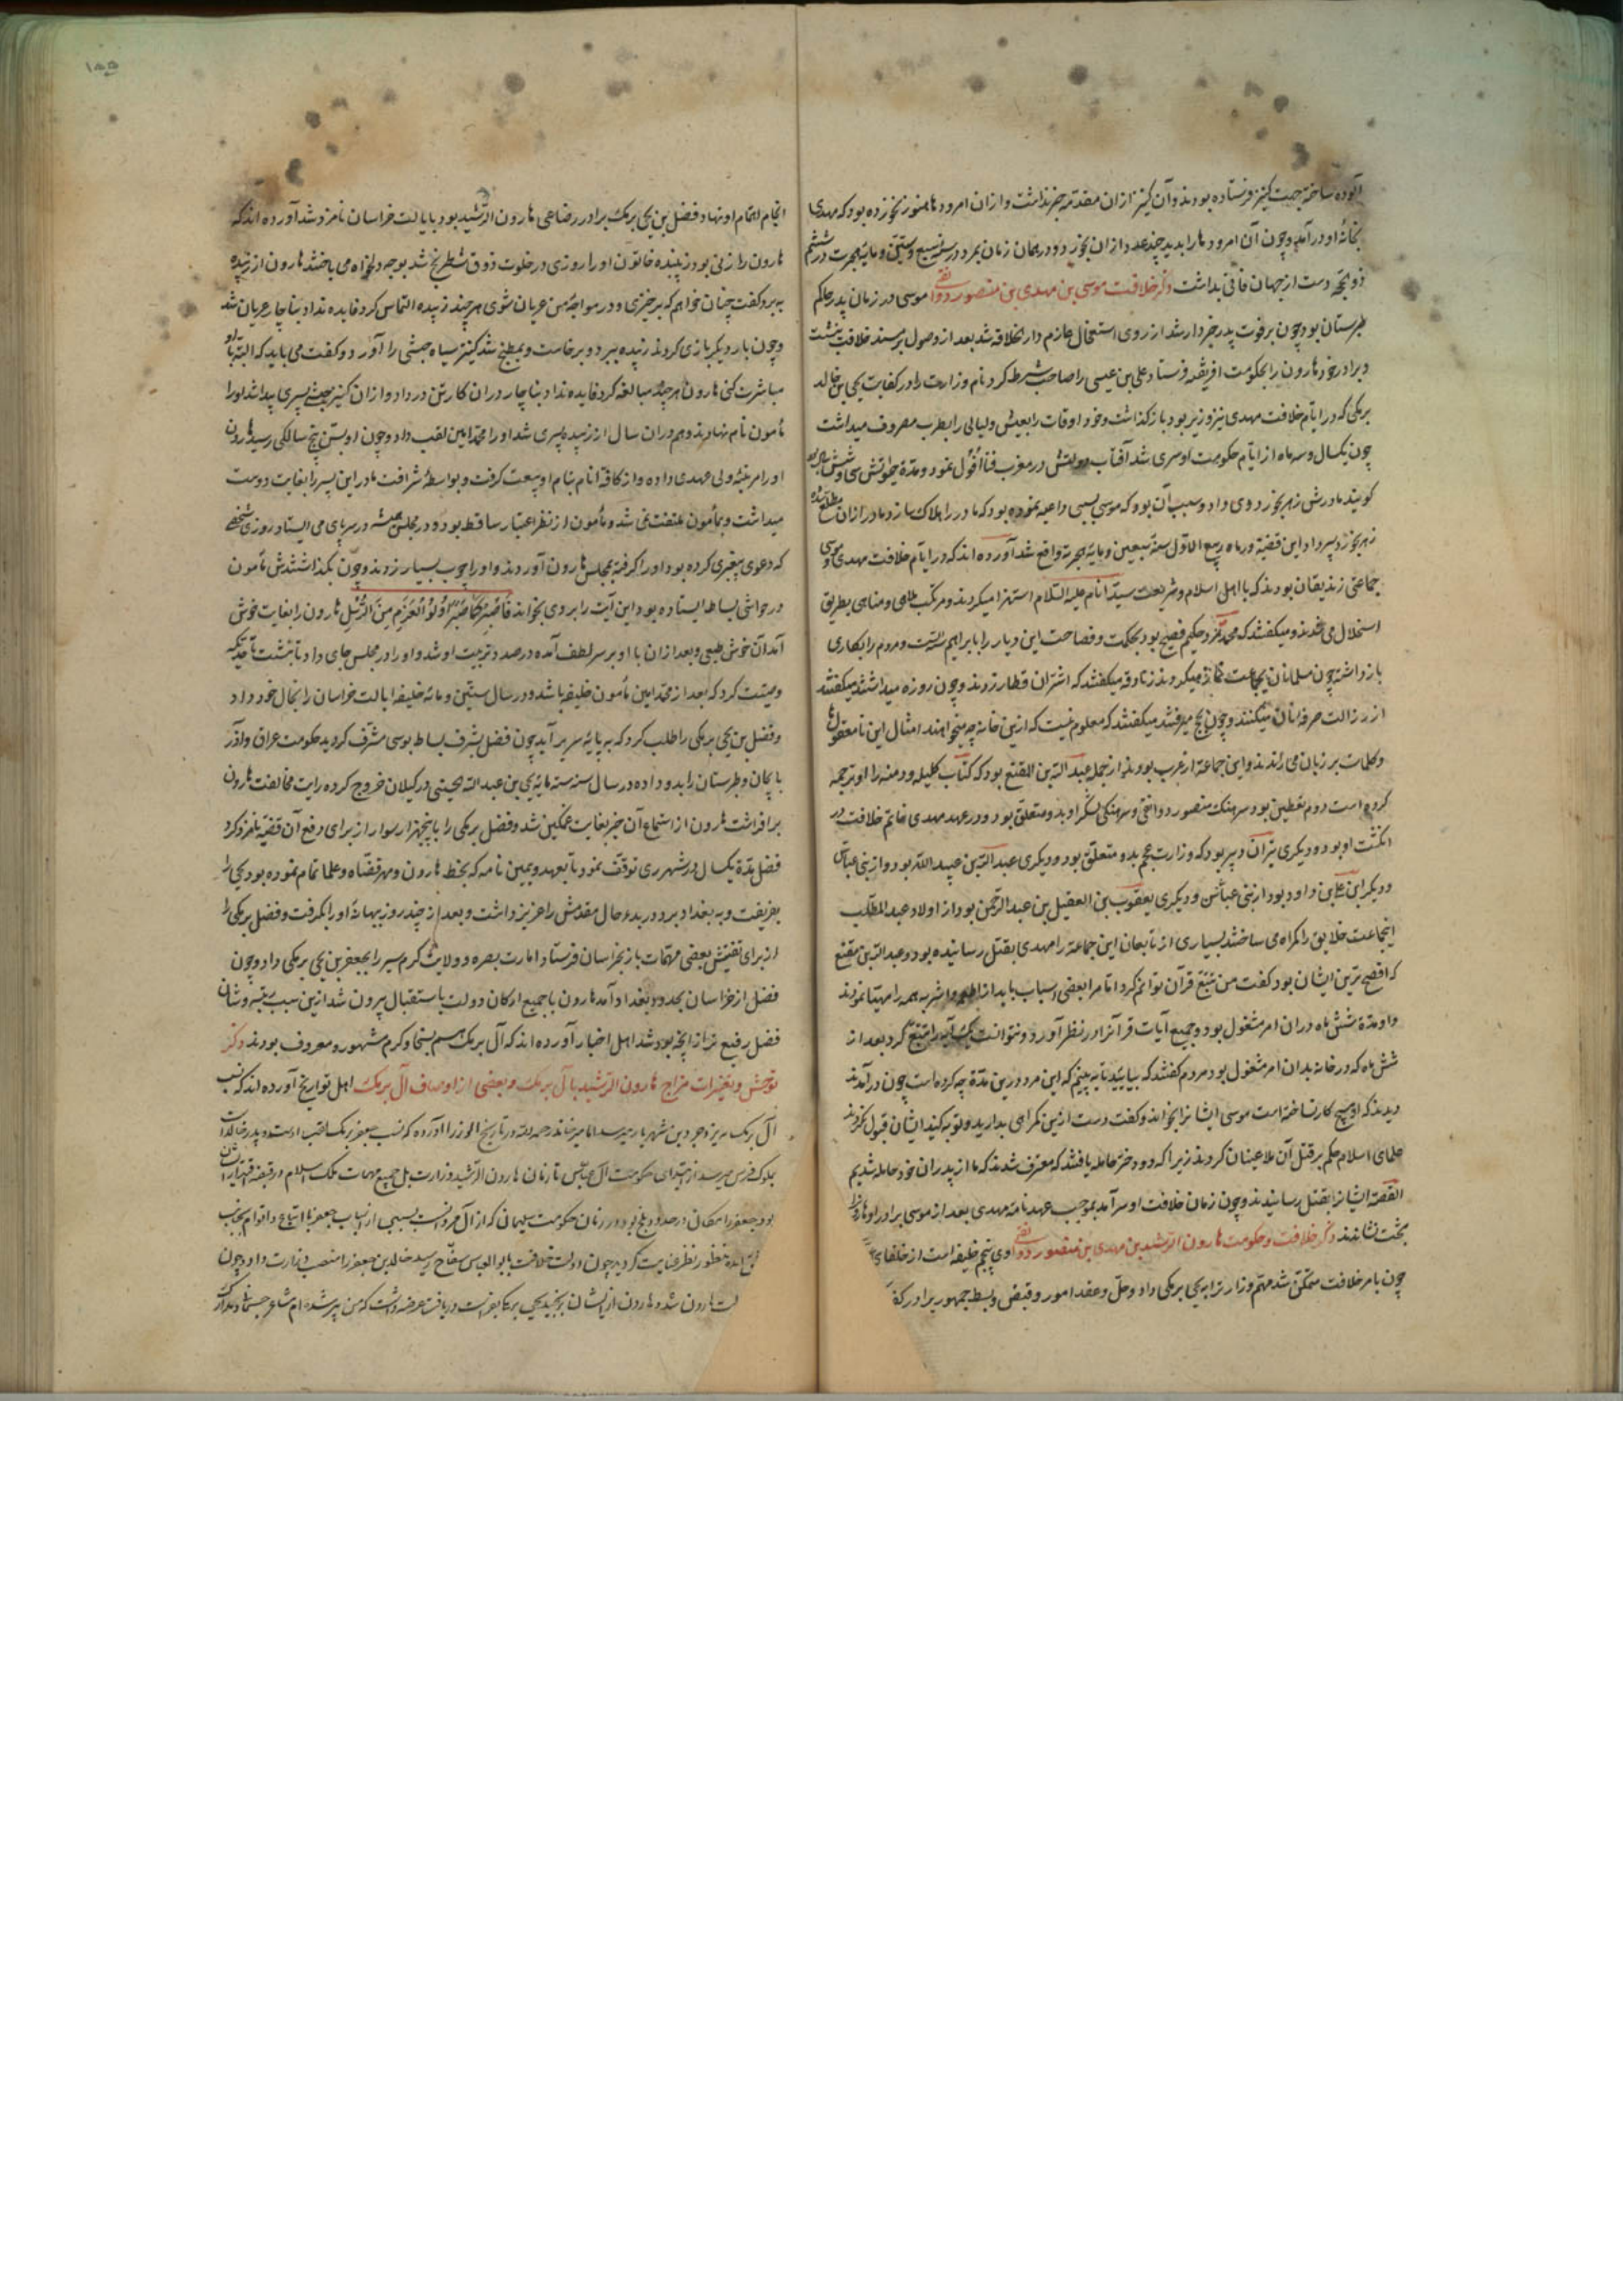 آلوده ساخته جهت کنیز فرستاده بودند و آن کنیز ازان مقدمه خبر نداشت و ازان امرودها هنوز نخورده بود که مهدی
بخانهٔ او درآمد و چون آن امرودها را بدید چند عدد ازان بخورد و در همان زمان بمرد در سنه سبع و ستین و مایه هجرت در ششم
ذو حجه دست از جهان فانی بداشت ذکر خلافت موسی بن مهدی بن منصور دوانقی موسی در زمان پدر حاکم
طبرستان بود چون بر فوت پدر خبردار شد از روی استعجال عازم دار الخلافه شد بعد از وصول بر مسند خلافت بنشست
و برادر خود هارون را بحکومت افریقیه فرستاد علی بن عیسی را صاحب شرطه کرد نام وزارت را در کفایت یحیی بن خالد
برمکی که در ایام خلافت مهدی نیز وزیر بود باز گذاشت و خود اوقات را بعیش و لیالی را بطرب مصروف میداشت
چون یکسال و سه ماه از ایام حکومت او سری شد آفتاب دولتش در مغرب فنا افول نمود و مدة حیوتش سی و شش سال بود
گویند مادرش زهر بخورد وی داد و سبب آن بود که موسی بسببی داعیه نموده بود که مادر را هلاک سازد مادر ازان مطلع شده
زهر بخورد پسر داد این قضیه در ماه ربیع الاول سنهٔ سبعین و مایه هجریه واقع شد آورده اند که در ایام خلافت مهدی و موسی
جماعتی زندیقان بودند که با اهل اسلام و شریعت سید انام علیه السلام استهزا میکردند و مرتکب ملاهی و مناهی بطریق
استحلال می شدند و میگفتند که محمد مرد حکیم فصیح بود بحکمت و فصاحت این دیار را بابراهیم شکست و مردم را بکاری
بازداشته چون مسلمانان بجماعت نماز میکردند زنادقه میگفتند که اشتران قطار زدند و چون روزه میداشتند میگفتند
از رزالت صرفهٔ نان میکنند و چون بحج میرفتند میگفتند که معلوم نیست که ازین خانه چه میخواهند امثال این نامعقولها
و کلمات بر زبان می راندند و این جماعة از عرب بودند از جمله عبد الله بن المقنع بود که کتاب کلیله و دمنه را او ترجمه
کرده است دوم یقطین بود سرهنگ منصور دوانقی و سرهنگی لشکر او بدو متعلق بود و در عهد مهدی خاتم خلافت در
انگشت او بود و دیگری یزدان دبیر بود که وزارت عجم بدو متعلق بود و دیگری عبد الله بن عبید الله بود و از بنی عباس
و دیگر ابن علی بن داود بود از بنی عباس و دیگری یعقوب بن العقیل بن عبد الرحمن بود از اولاد عبد المطلب
اینجماعت خلایق را گمراه می ساختند بسیاری از تابعان این جماعة را مهدی بقتل رسانیده بود و عبد الله بن مقنع
که افصح ترین ایشان بود گفت من تتبع قرآن توانم کرد اما مرا بعضی اسباب باید از اطعمه و اشربه همه را مهیا نمودند
و او مدة شش ماه دران امر مشغول بود و جمیع آیات قرآنرا در نظر آورد و نتوانست یک آیه را تتبع کرد بعد از
شش ماه که در خانه بدان امر مشغول بود مردم گفتند که بیایید تا به بینیم که این مرد درین مدة چه کرده است چون درآمدند
دیدند که او هیچ کار نساخته است موسی ایشانرا بخواند و گفت دست ازین گمراهی بدارید و توبه کنید ایشان قبول نکردند
علمای اسلام حکم بر قتل آن ملاعینان کردند زیرا که دو دختر حامله یافتند که معترف شدند که ما از پدران خود حامله شدیم
القصه ایشانرا بقتل رسانیدند و چون زمان خلافت او سر آمد بموجب عهد نامه مهدی بعد از موسی برادر او هارون را
بتخت نشاندند ذکر خلافت و حکومت هارون الرشید بن مهدی بن منصور دوانقی وی پنجم خلیفه است از خلفای
چون بامر خلافت متمکن شد مهم وزارترا به یحیی برمکی داد و حل و عقد امور و قبض و بسط جمهور برادر
۱۵۵
انجام اهتمام او نهاد و فضل بن یحیی برمک برادر رضاعی هارون الرشید بود بایالت خراسان نامزد شد آورده اند که
هارون را زنی بود زبیده خاتون او را روزی در خلوت ذوق شطرنج شد بوجه دلخواه می باختند هارون از زبیده
به برد و گفت چنان خواهم که برخیزی و در مواجهٔ من عریان شوی هر چند زبیده التماس کرد فایده نداد بناچار عریان شد
و چون بار دیگر بازی کردند زبیده ببرد و برخاست و بمطبخ شد کنیز سیاه حبشی را آورد و گفت می باید که البته با او
مباشرت کنی هارون هر چند مبالغه کرد فایده نداد بناچار دران کار تن در داد و ازان کنیز حبشی پسری پیدا شد او را
مأمون نام نهادند و هم دران سال از زبیده پسری شد او را محمد امین لقب داد و چون او بسن پنج سالگی رسید هارون
او را مرتبهٔ ولی عهدی داده و از کافهٔ انام بنام او بیعت گرفت و بواسطهٔ شرافت مادر این پسر را بغایت دوست
میداشت و بمأمون ملتفت نمی شد و مأمون از نظر اعتبار ساقط بوده و در مجلس همیشه در سر پای می ایستاد روزی شخصی
که دعوی پیغمبری کرده بود او را گرفته بمجلس هارون آوردند و او را چوب بسیار زدند و چون بگذاشتندش مأمون
در حواشی بساط ایستاده بود این آیت را بر وی بخواند فَاصْبِرْ كَمَا صَبَرَ اُولُوا الْعَزْمِ مِنَ الرُّسُلِ هارون را بغایت خوش
آمد آن خوش طبعی و بعد ازان با او بر سر لطف آمده در صدد تربیت او شد و او را در مجلس جای داد تا بنشست تا حدیکه
وصیت کرد که بعد از محمد امین مأمون خلیفه باشد و در سال ستین و مائه خلیفه ایالت خراسان را بخال خود داد
و فضل بن یحیی برمکی را طلب کرد که به پایهٔ سریر آید چون فضل بشرف بساط بوسی مشرف گردید حکومت عراق و آذر
بایجان و طبرستان را بدو داده در سال سنه سته مایه یحیی بن عبد الله حسینی در گیلان خروج کرده رایت مخالفت هارون
برافراشت هارون از استماع آن خبر بغایت غمگین شد و فضل برمکی را با پنجهزار سوار از برای دفع آن قضیه نامزد کرد
فضل مدة یکسال در شهر ری توقف نمود تا بعهد و یمین نامه که بخط هارون و مهر قضاه و علما تمام نموده بود یحیی را
بفریفت و به بغداد برد در بدء حال مقدمش را عزیز داشت و بعد از چند روز ببهانهٔ او را بگرفت و فضل برمکی را
از برای تفتیش بعضی مهمات باز بخراسان فرستاد امارت بصره و ولایت گرم سیر را بجعفر بن یحیی برمکی داد و چون
فضل از خراسان بحدود بغداد آمد هارون با جمیع ارکان دولت باستقبال بیرون شد ازین سبب رتبه و شان
فضل رفیع تر از آنچه بود شد اهل اخبار آورده اند که آل برمک همه بسخا و کرم مشهور و معروف بودند ذکر
توحش و تغیرات مزاج هارون الرشید با آل برمک و بعضی از اوصاف آل برمک اهل تواریخ آورده اند که نسب
آل برمک به یزدجرد بن شهریار میرسد اما میرخاند رحمه الله در تاریخ الوزرا آورده که نسب جعفر برمک لقب اوست و پدر خالد است
بملوک فرس میرسد از ابتدای حکومت آل عباس تا زمان هارون الرشید وزارت بل جمیع مهمات ملک اسلام در قبضه اقتدار ایشان
بود جعفر را مکان در حدود بلخ بود در زمان حکومت سلیمان که از آل مروانست بسببی از اسباب جعفر با اتباع و اقوام بجانب
آمده منظور نظر عنایت گردید چون دولت خلافت بابو العباس سفاح رسید خالد بن جعفر را منصب وزارت داد و چون
هارون شد و هارون از ایشان برنجید یحیی برمکی بفراست دریافت عرضه داشت که من پیر شده ام